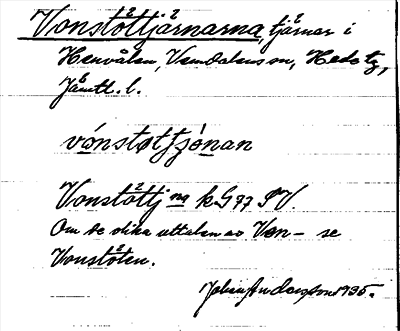 Vonstöttjärnarna, tjärnar i
Henvålen, Vemdalens sn, Hede tg,
Jämtl. l.
vónstøttjὸ̠nan
Vonstöttj na kG 77 SV.
Om de olika uttalen av Von- se
Vonstöten.
Johan Anderson 1935.